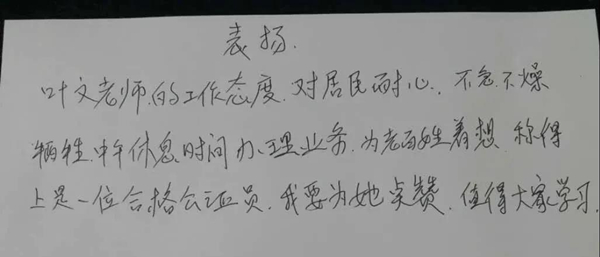 表扬.
叶文老师.的工作态度.对居民耐心.不急.不燥
牺牲.中午休息.时间办理业务.为老百姓着想.称得
上是一位合格公证员.我要为她点赞.值得大家学习.